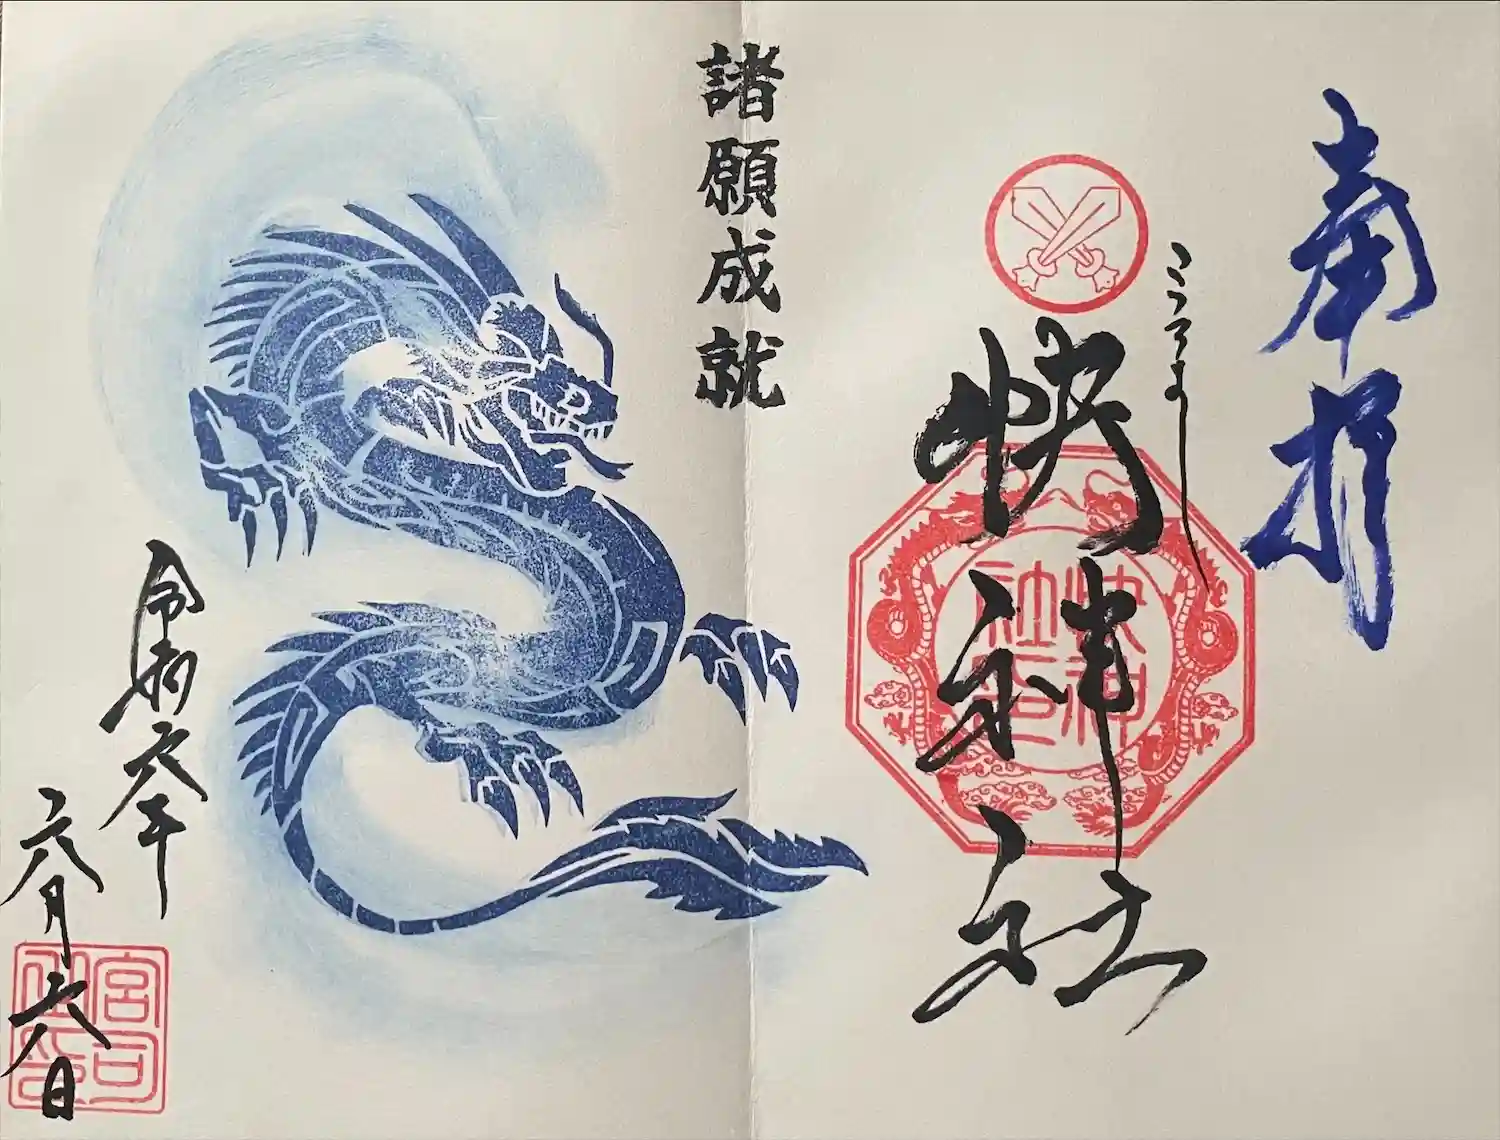 奉拝
こころよし
快神社
快神
社印
諸願成就
令和六年
六月六日
宮司
之印